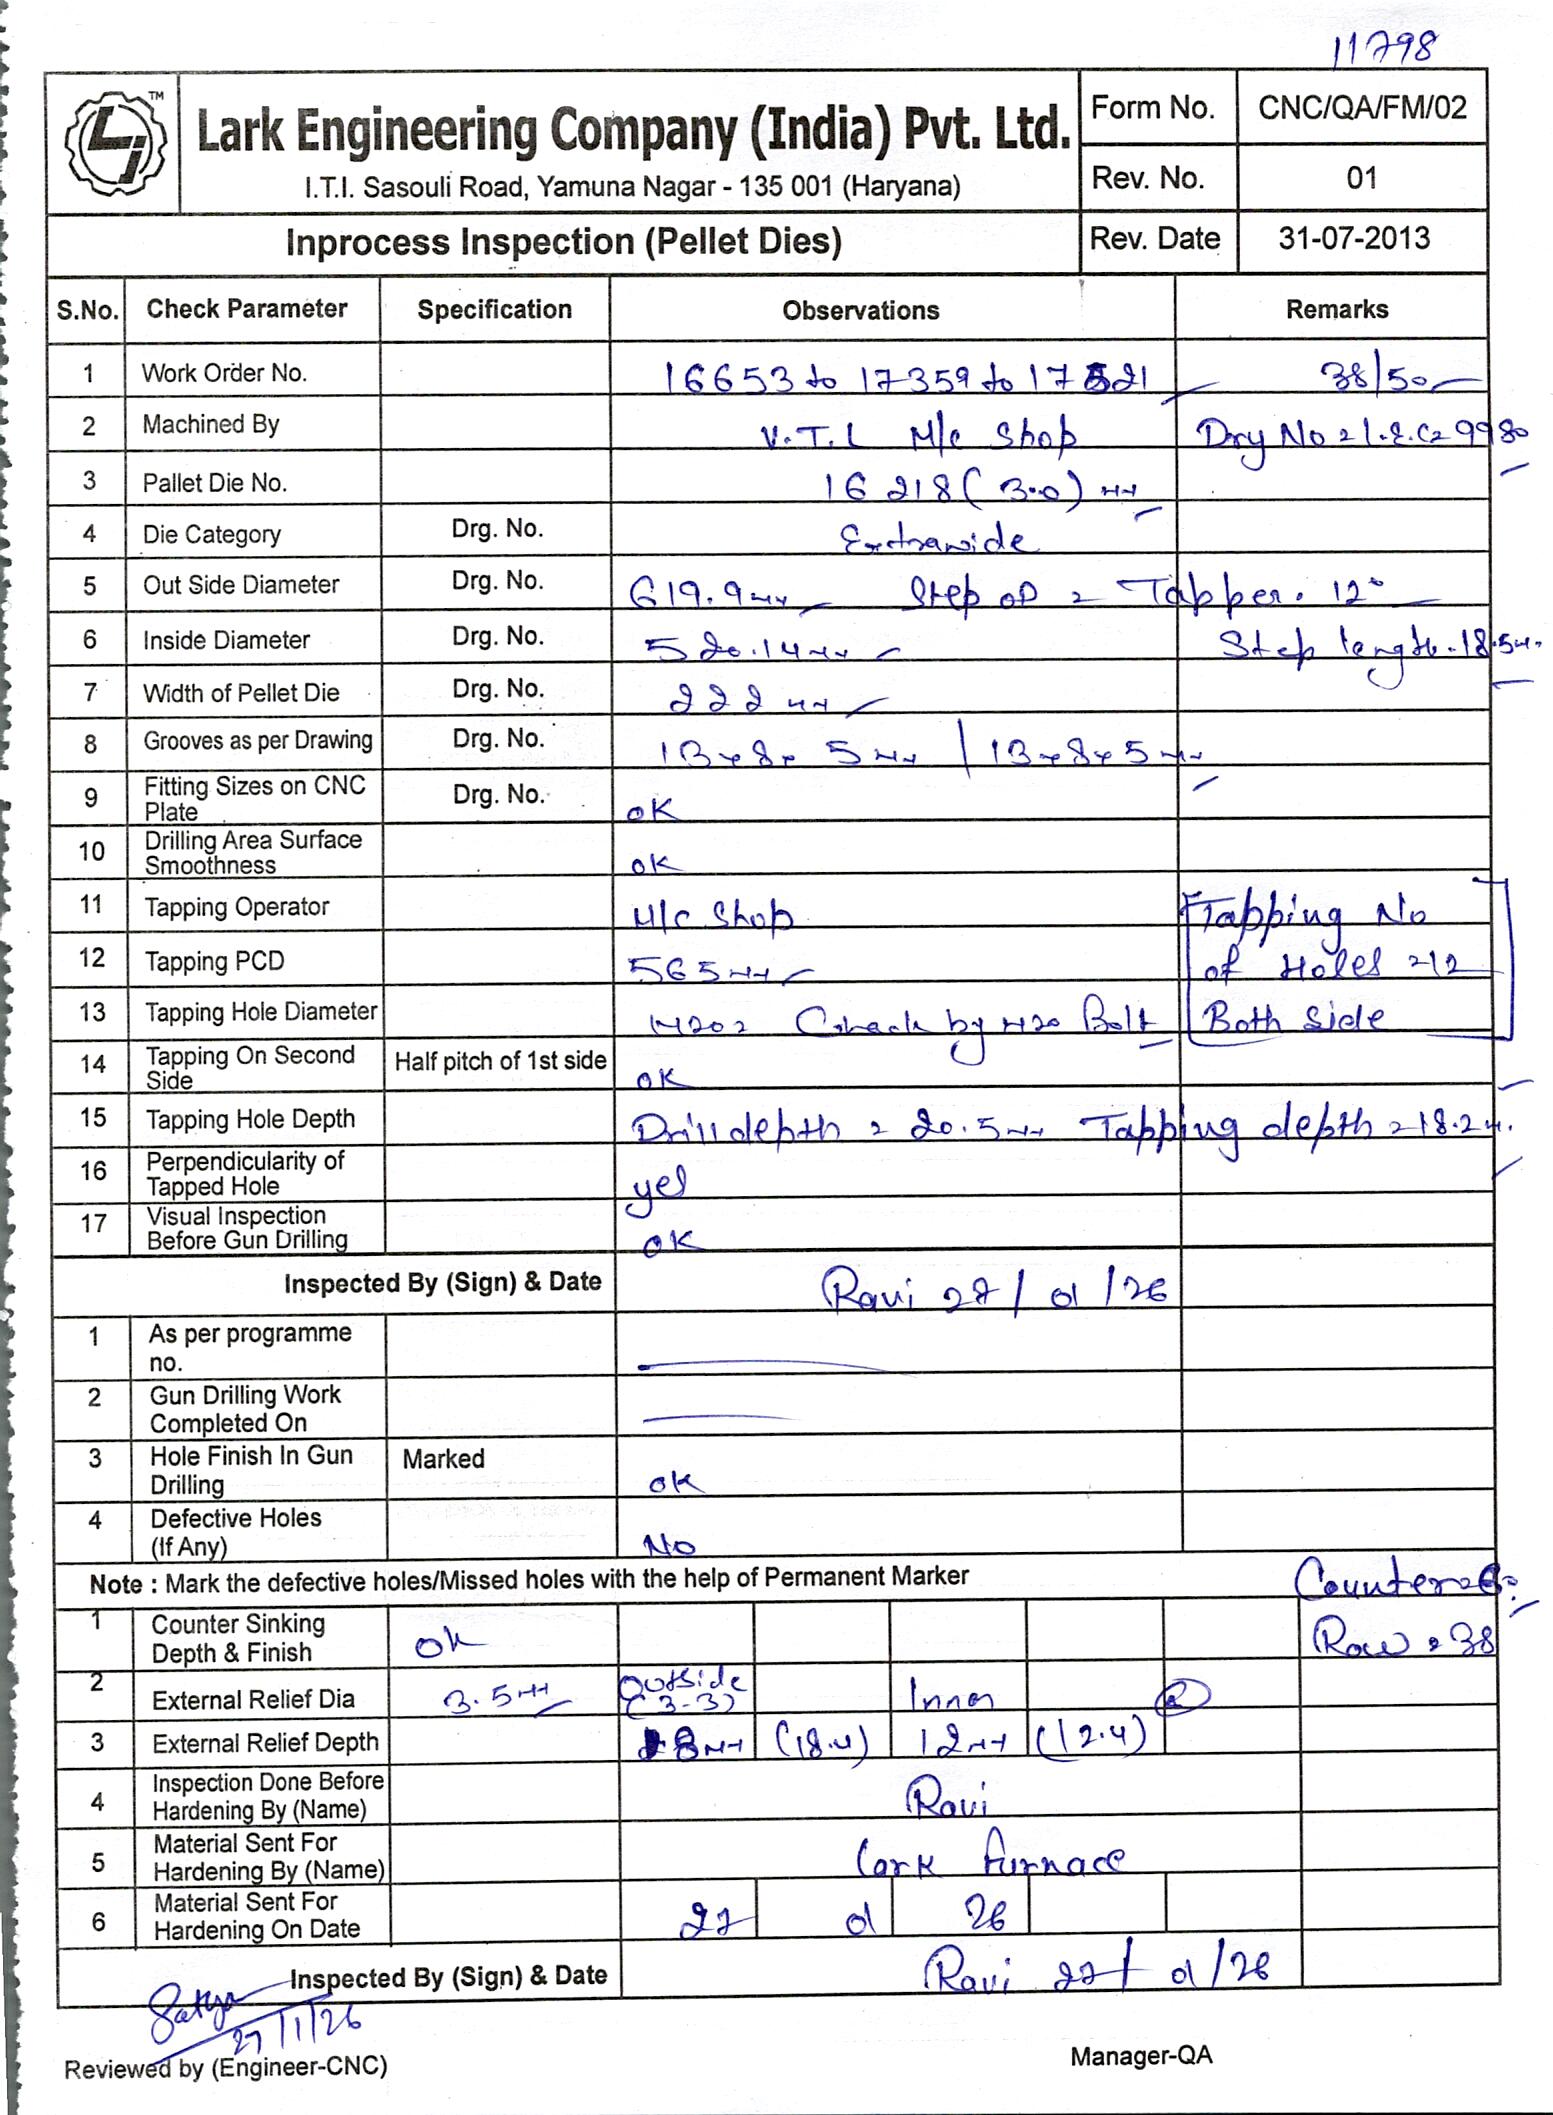 11798
TM
Lark Engineering Company (India) Pvt. Ltd.
I.T.I. Sasouli Road, Yamuna Nagar - 135 001 (Haryana)
Form No. CNC/QA/FM/02
Rev. No. 01
Inprocess Inspection (Pellet Dies)
Rev. Date 31-07-2013
S.No. Check Parameter Specification Observations Remarks
1 Work Order No. 16653 to 17359 to 17521 38/50
2 Machined By V.T.L M/c Shop Drg No = L.E.C= 9980
3 Pallet Die No. 16218 (3.0) mm
4 Die Category Drg. No. Extrawide
5 Out Side Diameter Drg. No. 619.9mm Step OD = Tapper. 12°
6 Inside Diameter Drg. No. 520.14mm Step length. 18.5m.
7 Width of Pellet Die Drg. No. 222 mm
8 Grooves as per Drawing Drg. No. 13x8x 5mm | 13x8x5mm
9 Fitting Sizes on CNC Plate Drg. No. OK
10 Drilling Area Surface Smoothness OK
11 Tapping Operator M/c Shop Tapping No
12 Tapping PCD 565mm of Holes =12
13 Tapping Hole Diameter M20= Check by M20 Bolt Both Side
14 Tapping On Second Side Half pitch of 1st side OK
15 Tapping Hole Depth Drill depth = 20.5mm Tapping depth =18.2m.
16 Perpendicularity of Tapped Hole yes
17 Visual Inspection Before Gun Drilling OK
Inspected By (Sign) & Date Ravi 27/01/26
1 As per programme no.
2 Gun Drilling Work Completed On
3 Hole Finish In Gun Drilling Marked OK
4 Defective Holes (If Any) No
Note : Mark the defective holes/Missed holes with the help of Permanent Marker
1 Counter Sinking Depth & Finish OK Row = 38
2 External Relief Dia 3.5mm Outside (3-3) Inner
3 External Relief Depth 8mm (18.4) 12mm (12.4)
4 Inspection Done Before Hardening By (Name) Ravi
5 Material Sent For Hardening By (Name) Lark furnace
6 Material Sent For Hardening On Date 27 01 26
Inspected By (Sign) & Date Ravi 27/01/26
Satya
27/1/26
Reviewed by (Engineer-CNC) Manager-QA